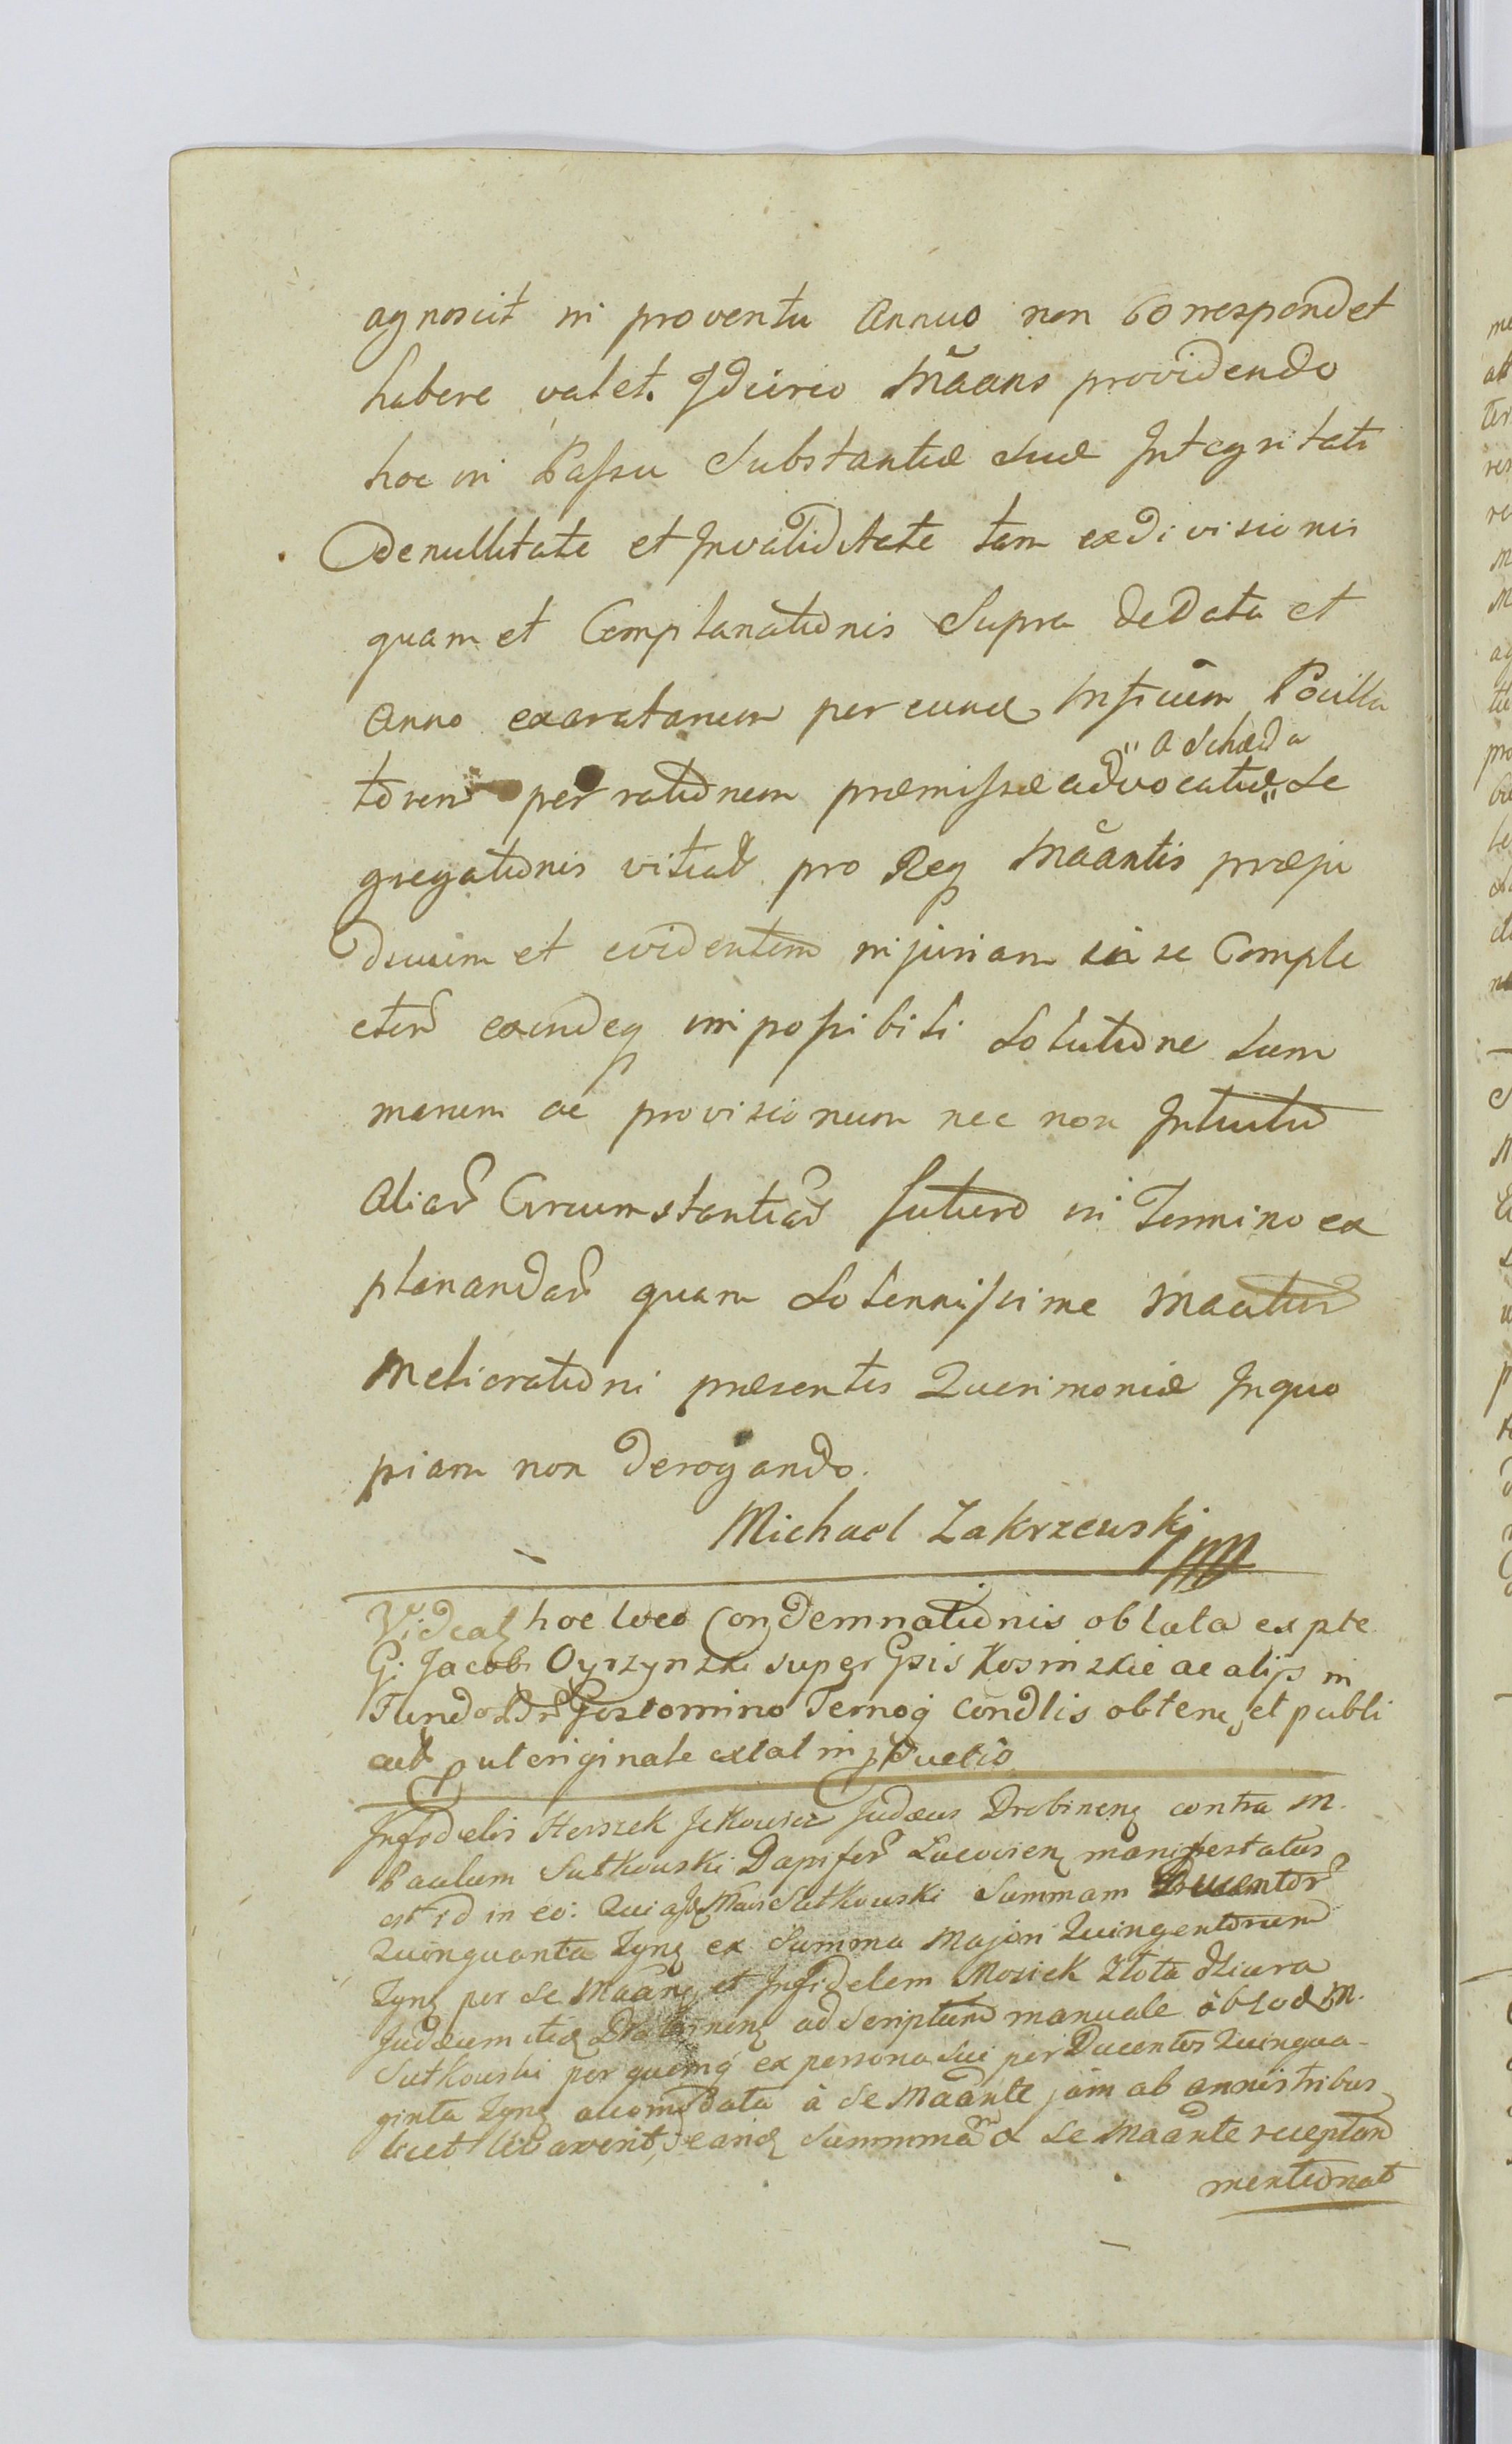 agnoscit in proventu annuo non Correspondet
habere valet. Idcirco Mãans providendo
hoc in Passu Substantiæ Suæ Integritati
de nullitate et Invaliditate tam exdivisionis
quam et Complanationis Supra de Data et
Anno exaratarum per eund Insicum Pocilla
torem per rationem præmissæ advocatiæ " a Scheda " Se
gregationis vitiat pro Req Mãantis præju
dicium et evidentem injuriam in se Comple
cten exindeq impossibili Solutione Sum
marum ac provisionum nec non Intuitu
Aliar Circumstantiar futuro in Termino ex
planandar quam Solennissime Maatur
Meliorationi præsentis Querimoniæ Inquo
piam non Derogando.
Michael Zakrzewski mp
Videatz hoc loco Condemnationis oblata ex pte
G. Jacobi Oyrzynski super Gsis Kosinskie ac alijs in
Fundo Gostomino Ternog Condlis obten et publi
cat ut originale extat in
Infidelis Herszek Jckowicz Judæus Drobinenz contra M.
Paulum Sutkowski Dapifer manifestatus
est id in eo: Quia Mans Sutkowski Summam Ducentor
Quinquanta Zynz ex Summa Majori Quingentorum
Zynz per se Mãanz et Infidelem Mosiek Złota dziura
Judæum itid Drobinenz ad Scriptum manuale ab eod M.
Sutkowski per quemq ex persona Sui per Ducentos Quinqua-
ginta Zynz accomodata à se Mãante jam ab annis tribus
licet levaverit, eand Summmam a se Mãante receptam
mentionat